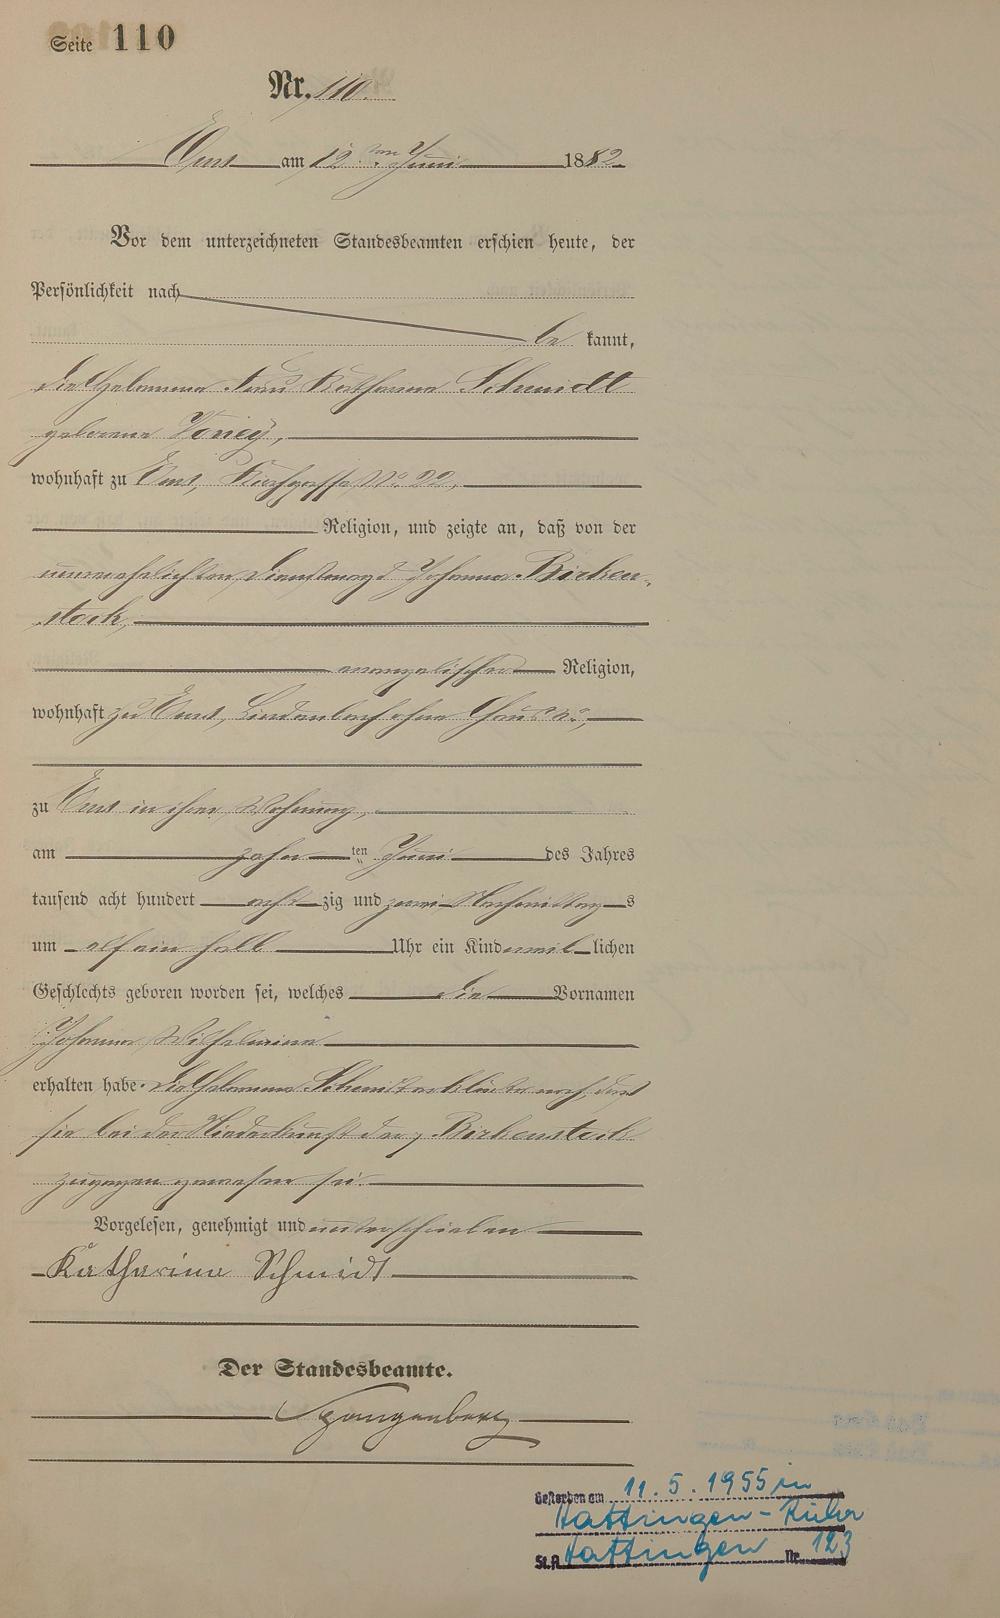 Seite 110
Nr. 110.
Ems am 12ten Juni 1882
Vor dem unterzeichneten Standesbeamten erschien heute, der
Persönlichkeit nach
be kannt,
die Hebamme Frau Katharina Schmidt
geborene
wohnhaft zu Ems, Kirchgasse No 22,
Religion, und zeigte an, daß von der
unverehelichten Dienstmagd Johanna Birken-
stock,
evangelischer Religion,
wohnhaft zu Ems, Lindenbach ohne Haus No,
zu Ems in ihrer Wohnung,
am zehnten Juni des Jahres
tausend acht hundert achtzig und zwei Nachmittags
um elf ein halb Uhr ein Kind weiblichen
Geschlechts geboren worden sei, welches die Vornamen
Johanna Wilhelmine
erhalten habe. Die Hebamme Schmidt erklärte noch, daß
sie bei der Niederkunft der Birkenstock
zugegen gewesen sei.
Vorgelesen, genehmigt und unterschrieben
Katharina Schmidt
Der Standesbeamte.
Spangenberg
Gestorben am 11.5.1955 in
Hattingen-Ruhr
St.A. Hattingen Nr. 123